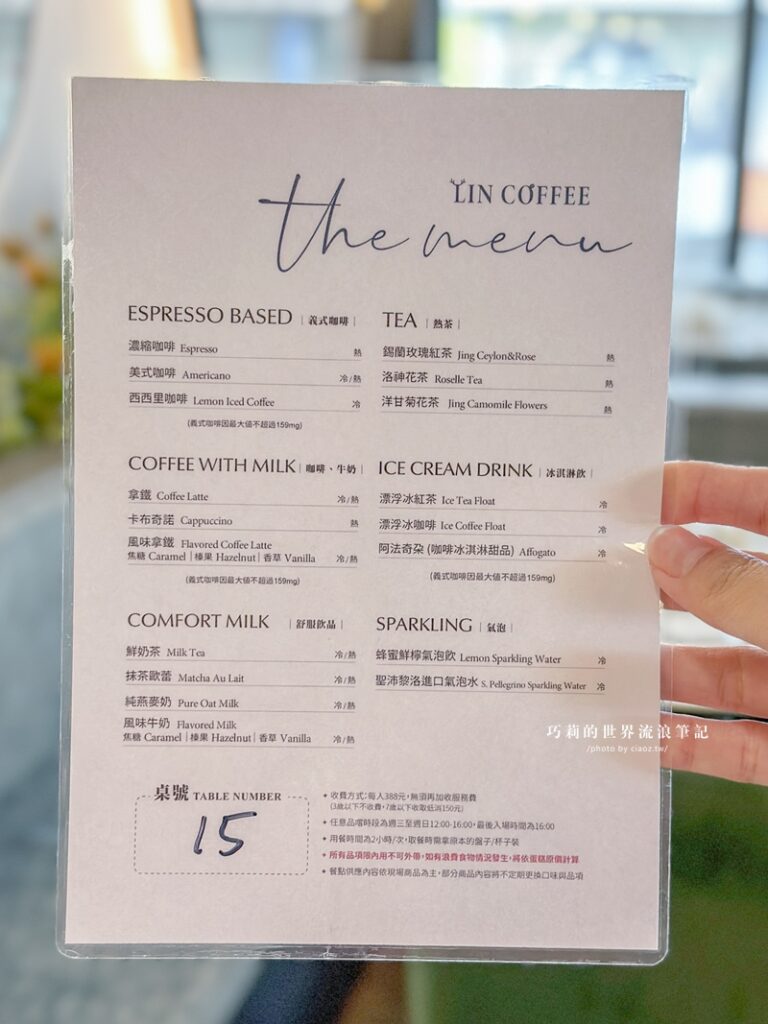 LIN COFFEE
the menu
ESPRESSO BASED |義式咖啡|
濃縮咖啡 Espresso 熱
美式咖啡 Americano 冷/熱
西西里咖啡 Lemon Iced Coffee 冷
(義式咖啡因最大值不超過159mg)
TEA |熱茶|
錫蘭玫瑰紅茶 Jing Ceylon&Rose 熱
洛神花茶 Roselle Tea 熱
洋甘菊花茶 Jing Camomile Flowers 熱
COFFEE WITH MILK |咖啡、牛奶|
拿鐵 Coffee Latte 冷/熱
卡布奇諾 Cappuccino 熱
風味拿鐵 Flavored Coffee Latte
焦糖 Caramel|榛果 Hazelnut|香草 Vanilla 冷/熱
(義式咖啡因最大值不超過159mg)
ICE CREAM DRINK |冰淇淋飲|
漂浮冰紅茶 Ice Tea Float 冷
漂浮冰咖啡 Ice Coffee Float 冷
阿法奇朶 (咖啡冰淇淋甜品) Affogato 冷
(義式咖啡因最大值不超過159mg)
COMFORT MILK |舒服飲品|
鮮奶茶 Milk Tea 冷/熱
抹茶歐蕾 Matcha Au Lait 冷/熱
純燕麥奶 Pure Oat Milk 冷/熱
風味牛奶 Flavored Milk
焦糖 Caramel|榛果 Hazelnut|香草 Vanilla 冷/熱
SPARKLING |氣泡|
蜂蜜鮮檸氣泡飲 Lemon Sparkling Water 冷
聖沛黎洛進口氣泡水 S. Pellegrino Sparkling Water 冷
巧莉的世界流浪筆記
/photo by ciaoz.tw/
桌號 TABLE NUMBER
15
✦ 收費方式:每人388元,無須再加收服務費
(3歲以下不收費,7歲以下收取低消150元)
✦ 任意品嚐時段為週三至週日12:00-16:00,最後入場時間為16:00
✦ 用餐時間為2小時/次,取餐時需拿原本的盤子/杯子裝
✦ 所有品項限內用不可外帶,如有浪費食物情況發生,將依蛋糕原價計算
✦ 餐點供應內容依現場商品為主,部分商品內容將不定期更換口味與品項